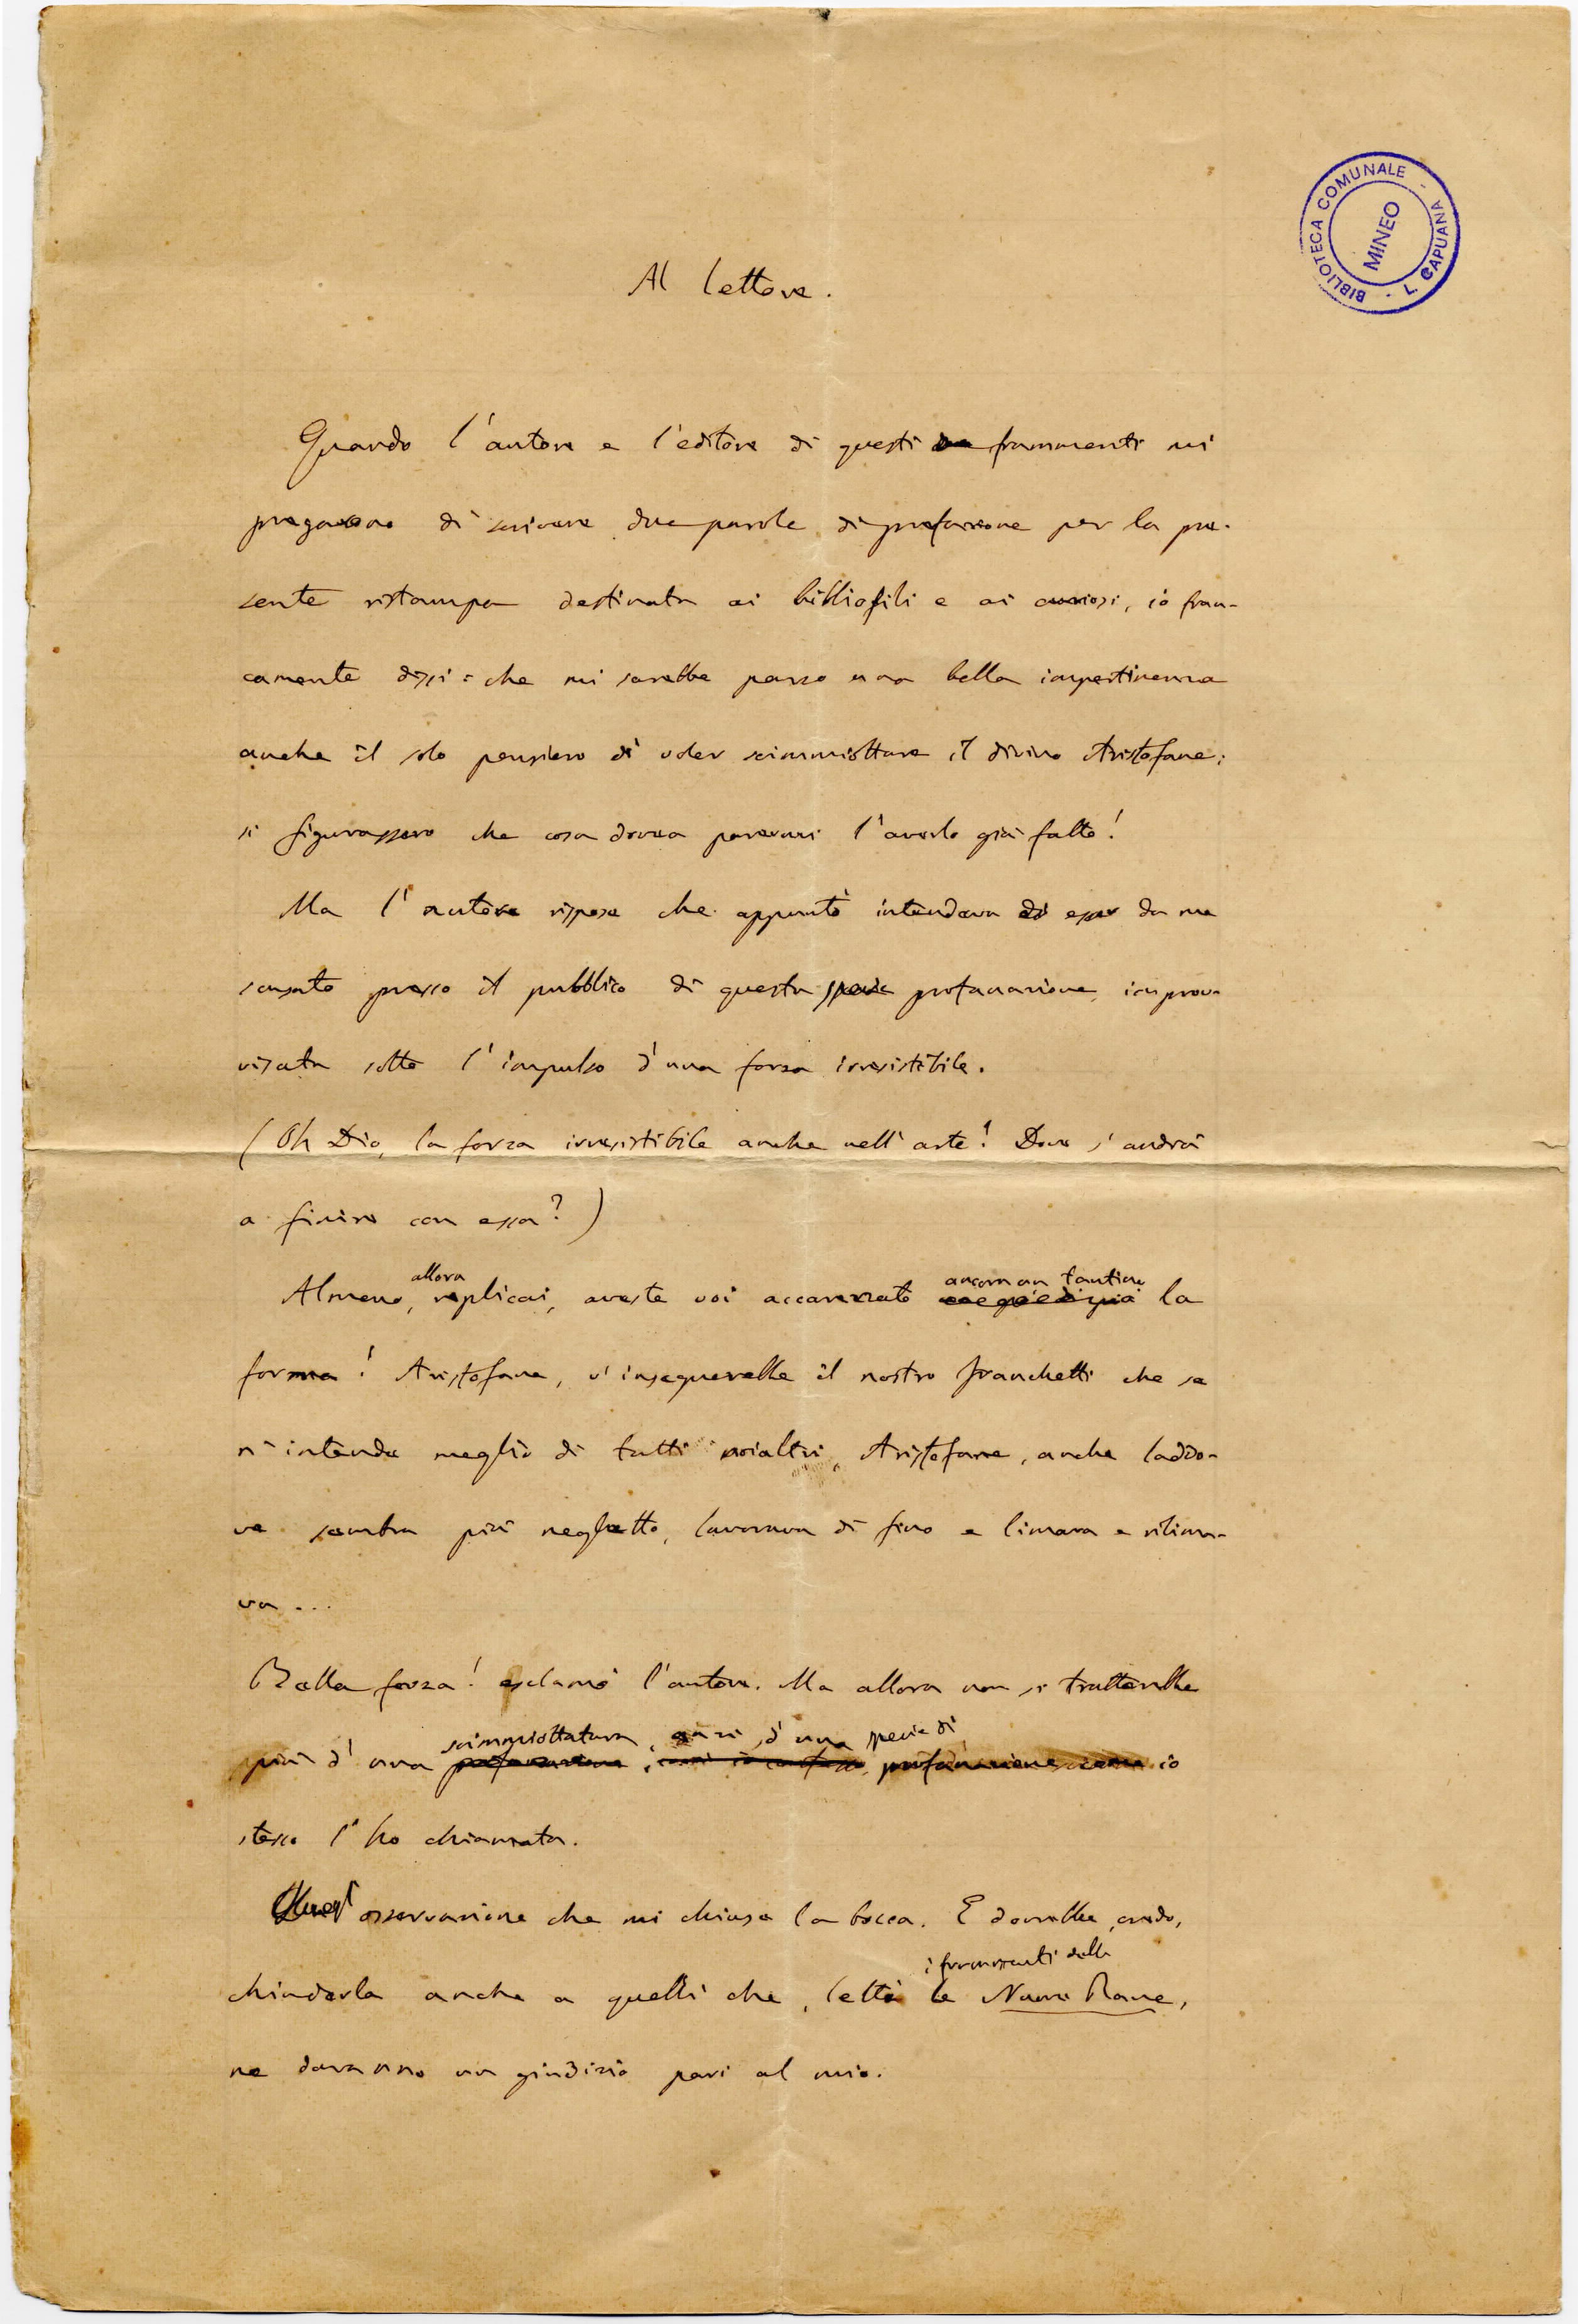 BIBLIOTECA COMUNALE - L. CAPUANA - MINEO
Al lettore.
Quando l'autore e l'editore di questi frammenti mi
pregarono di scrivere due parole di prefazione per la pre-
sente ristampa destinata ai bibliofili e ai curiosi, io fran-
camente dissi: che mi sarebbe parso una bella impertinenza
anche il solo pensiero di voler scimmiottare il divino Aristofane;
si figurassero che cosa dovea parermi l'averlo già fatto!
Ma l'autore rispose che appunto intendeva di esser da me
scusato presso il pubblico di questa specie profanazione, improv-
visata sotto l'impulso d'una forza irresistibile.
(Oh Dio, la forza irresistibile anche nell'arte! Dove s'andrà
a finire con essa?)
allora ancora un tantino
Almeno, replicai, aveste voi accarezzato la
forma! Aristofane, v'insegnerebbe il nostro Franchetti che se
n'intende meglio di tutti noialtri, Aristofane, anche laddo-
ve sembra più negletto, lavorava di fino e limava e rilima-
va...
Bella forza! esclamò l'autore. Ma allora non si tratterebbe
scimmiottatura, anzi, d'una specie di
più d'una profanazione, profanazione come io
stesso l'ho chiamata.
Quest'osservazione che mi chiuse la bocca. E dovrebbe, credo,
i frammenti delle
chiuderla anche a quelli che, letti le Nuove Rane,
ne daranno un giudizio pari al mio.